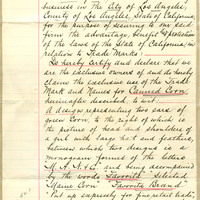 business in the City of Los Angeles,
County of Los Angeles, State of California,
for the purpose of securing to our said
firm the advantage, benefit & protection
of the Laws of the State of California, in
relation to Trade Marks:
Do hereby certify and declare that we
are the exclusive owners of and do hereby
claim the exclusive use of the Trade
Mark and Names for Canned Corn
hereinafter described, to wit:
A design representing two ears of
green Corn, to the right of which is
the picture of head and shoulders of
a with large hat and feathers,
between which two designs is a
monogram formed of the letters
and being accompanied
by the words "Favorite" Selected
Maine Corn "Favorite Brand"
"Put up expressly for fine retail trade",